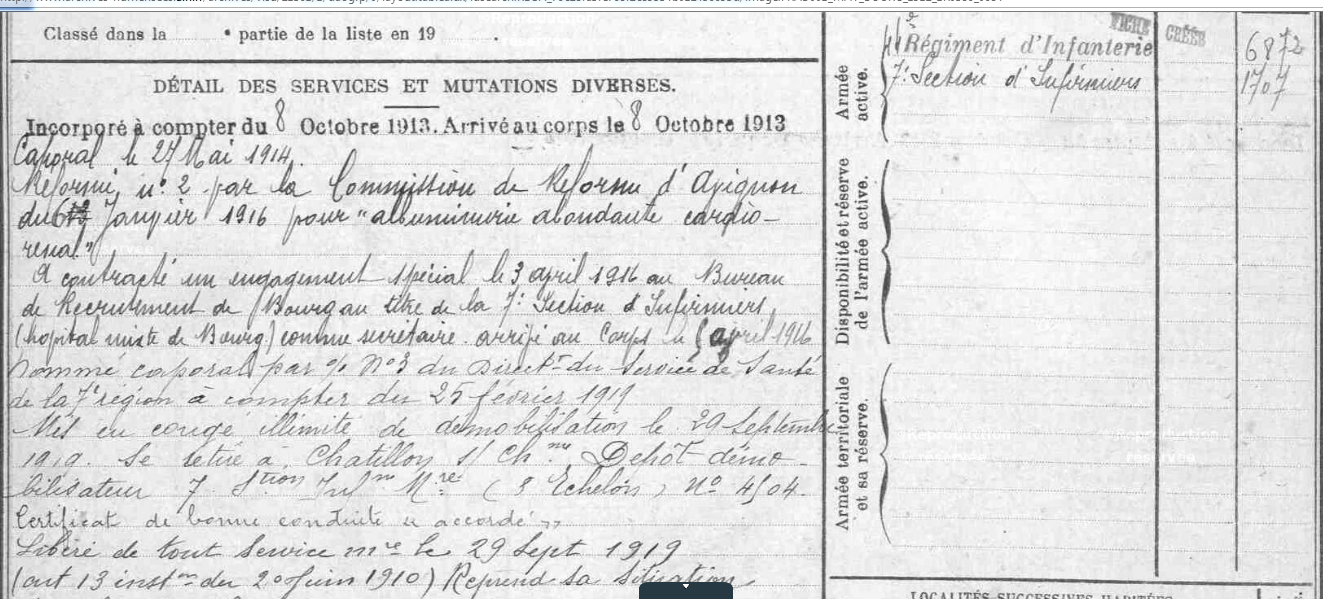 Classé dans la • partie de la liste en 19 .
DÉTAIL DES SERVICES ET MUTATIONS DIVERSES.
Incorporé à compter du 8 Octobre 1913. Arrivé au corps le 8 Octobre 1913
Caporal le 27 Mai 1914.
Réformé n° 2 par la Commission de Reforme d'Avignon
du 6 Janvier 1916 pour "albuminurie abondante cardio-
renal"
A contracté un engagement spécial le 3 april 1916 au Bureau
de Recrutement de Bourg au titre de la 7e Section d'Infirmiers
(hopital mixte de Bourg) comme secrétaire. arrivé au Corps le 5 april 1916
Nommé caporal par % N°3 du Direct.r du Service de Santé
de la 7e région à compter du 25 février 1919
Mis en congé illimité de démobilisation le 29 Septembre
1919. Se retire à Chatillon s/ Ch.ne Depôt démo-
bilisateur 7 S.tion Inf.m M.re ( 3 Echelon ) N° 4504.
Certificat de bonne conduite "accordé"
Libéré de tout Service m.re le 29 Sept 1919
(art 13 inst.on du 20 Juin 1910) Reprend sa situation
Armée active.
Régiment d'Infanterie
FICHE CRÉÉE
6872
7e Section d'Infirmiers
1707
Disponibilité et réserve de l'armée active.
Armée territoriale et sa réserve.
LOCALITÉS SUCCESSIVES HABITÉES